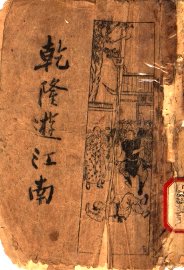 乾隆遊江南